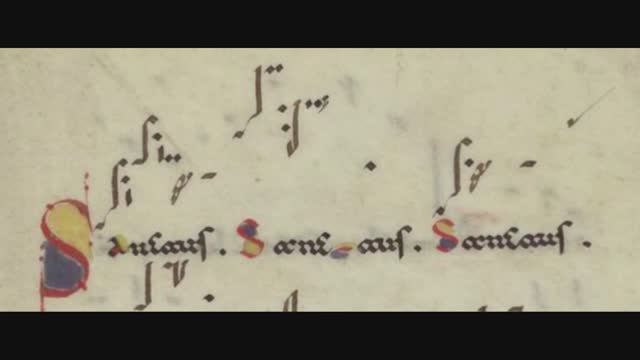 Sanctus . Sanctus . Sanctus .